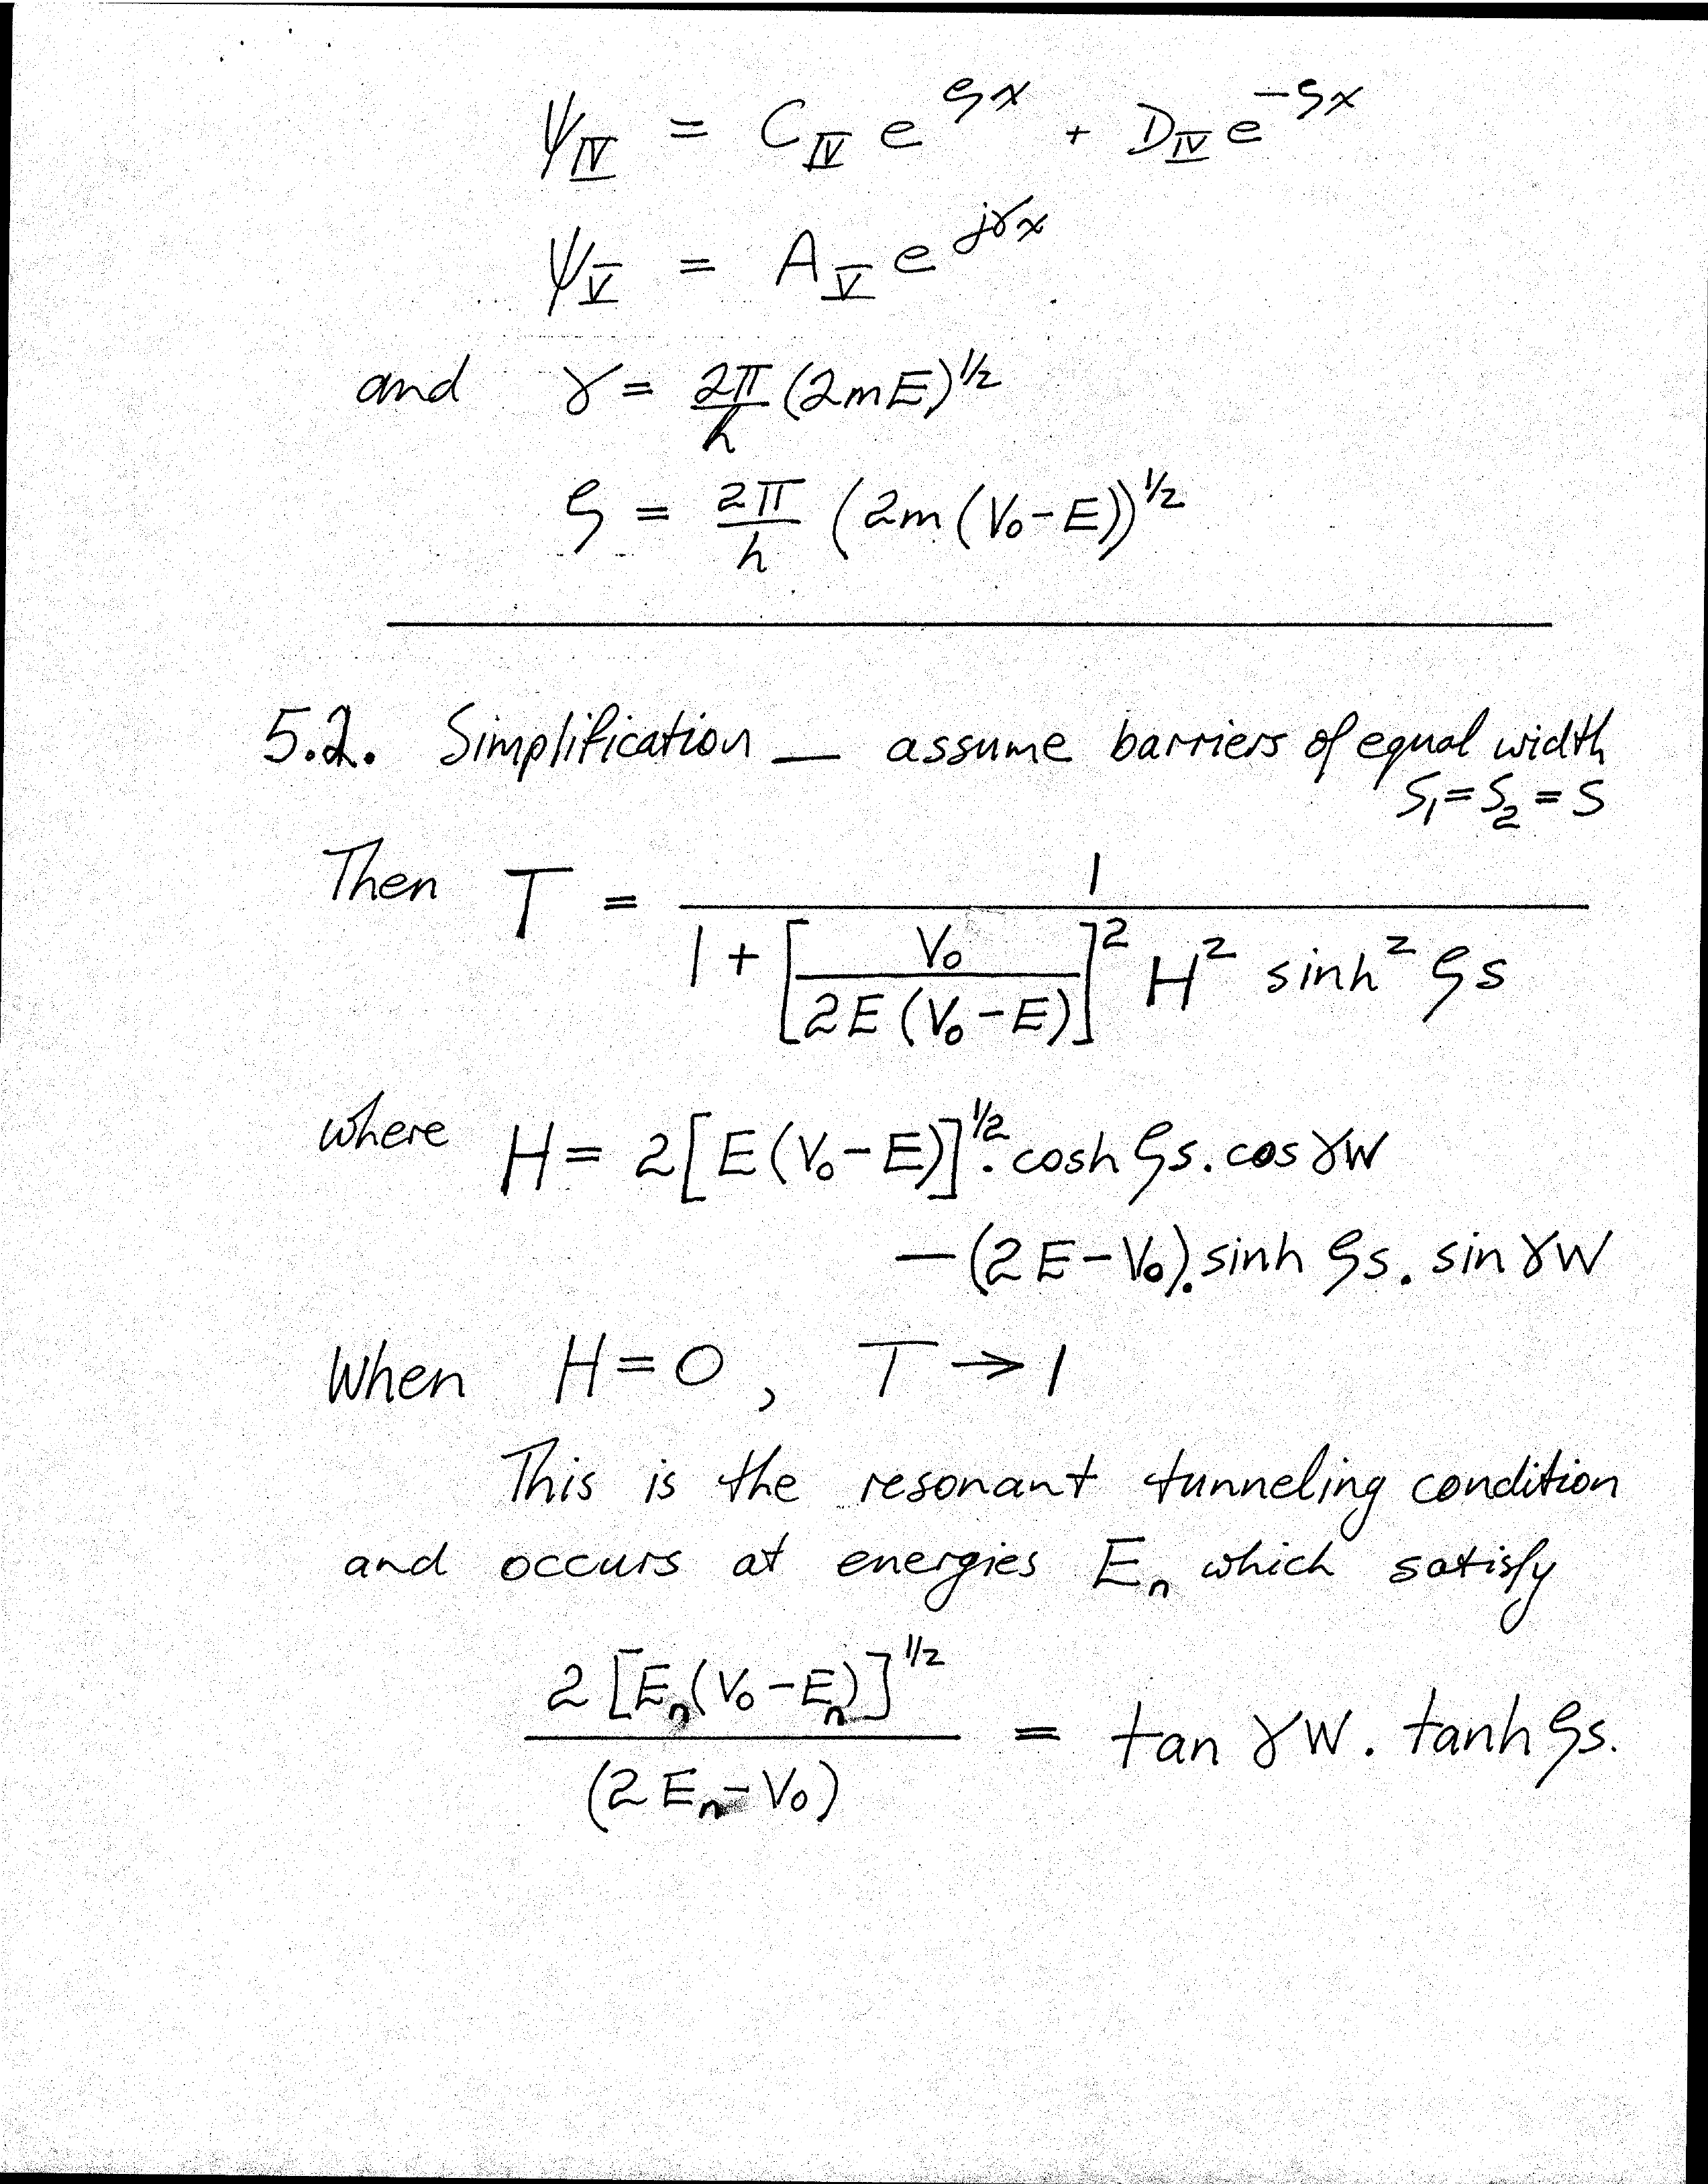 ψ_IV = C_IV e^{ζx} + D_IV e^{-ζx}
ψ_V = A_V e^{jγx}
and γ = 2π/h (2mE)^{1/2}
ζ = 2π/h (2m(V₀-E))^{1/2}
5.2. Simplification — assume barriers of equal width
S₁=S₂=S
Then T = 1 / (1 + [V₀ / 2E(V₀-E)]² H² sinh² ζs)
where H = 2[E(V₀-E)]^{1/2}. cosh ζs. cos γW
-(2E-V₀). sinh ζs. sin γW
When H=0, T→1
This is the resonant tunneling condition
and occurs at energies Eₙ which satisfy
2[Eₙ(V₀-Eₙ)]^{1/2} / (2Eₙ-V₀) = tan γW. tanh ζs.